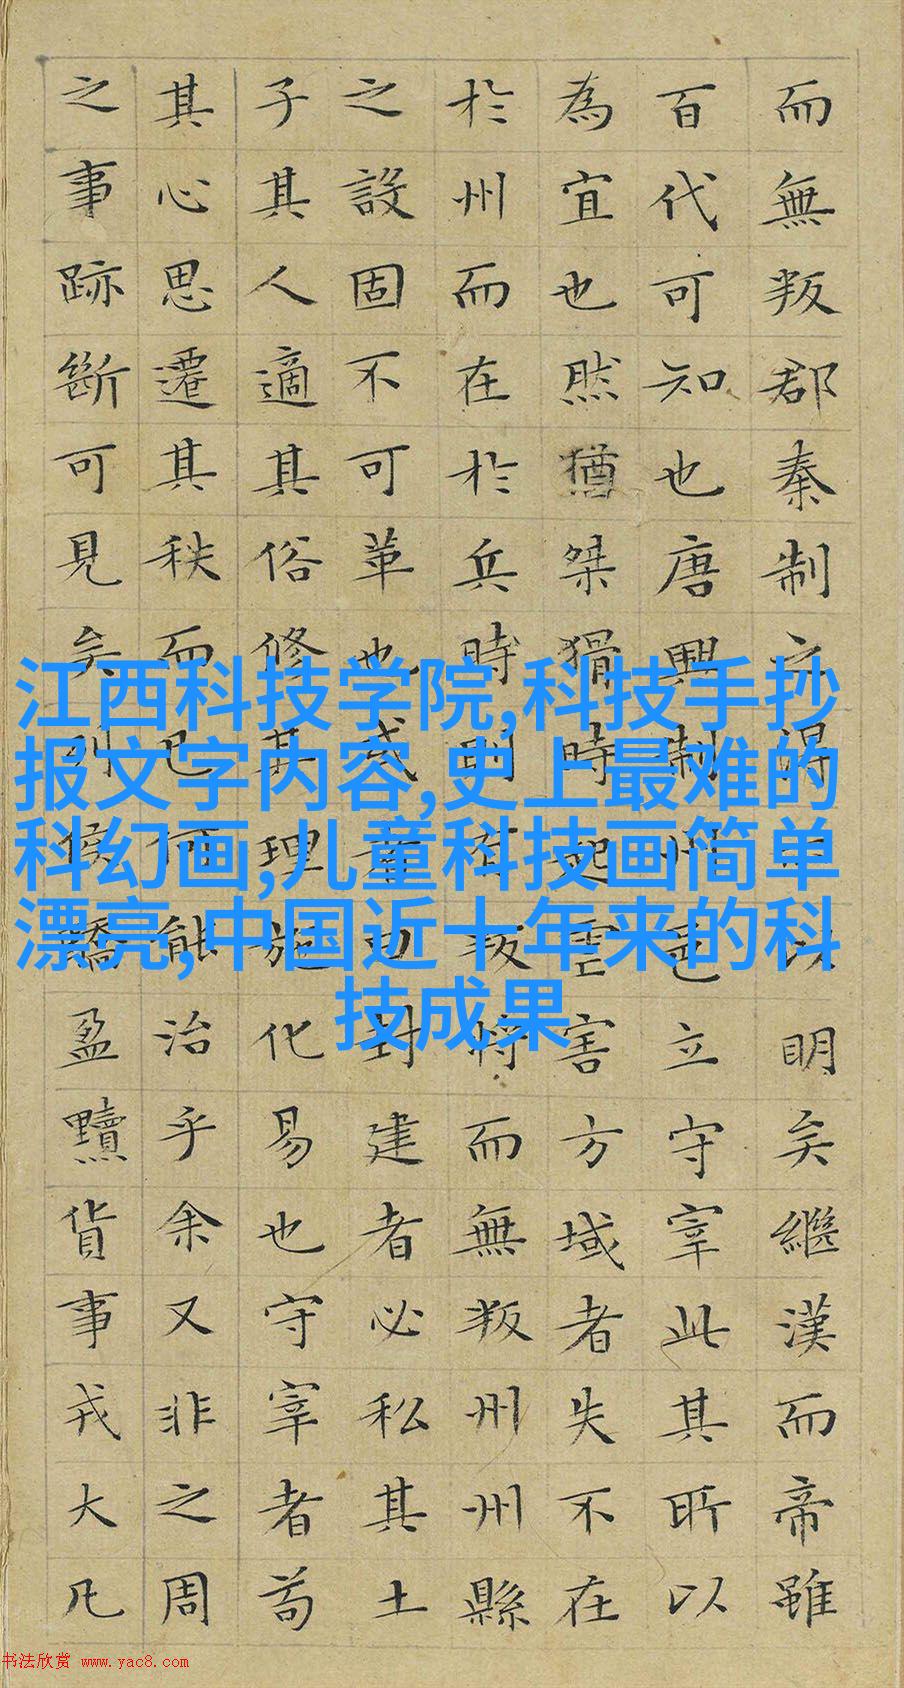 而無叛郡秦制之得以明矣繼漢而帝雖
百代可知也唐興制州邑立守宰此其所以
為宜也然猶桀猾時起虐害方域者失不在
於州而在於兵時則有叛將而無叛州州縣
之設固不可革也或者曰封建者必私其土
子其人適其俗修其理施化易也守宰者苟
其心思遷其秩而已何能治乎余又非之周
之事跡斷可見矣列侯驕盈黷貨事戎大凡
江西科技学院,科技手抄
报文字内容,史上最难的
科幻画,儿童科技画简单
漂亮,中国近十年来的科
技成果
书法欣赏 www.yac8.com